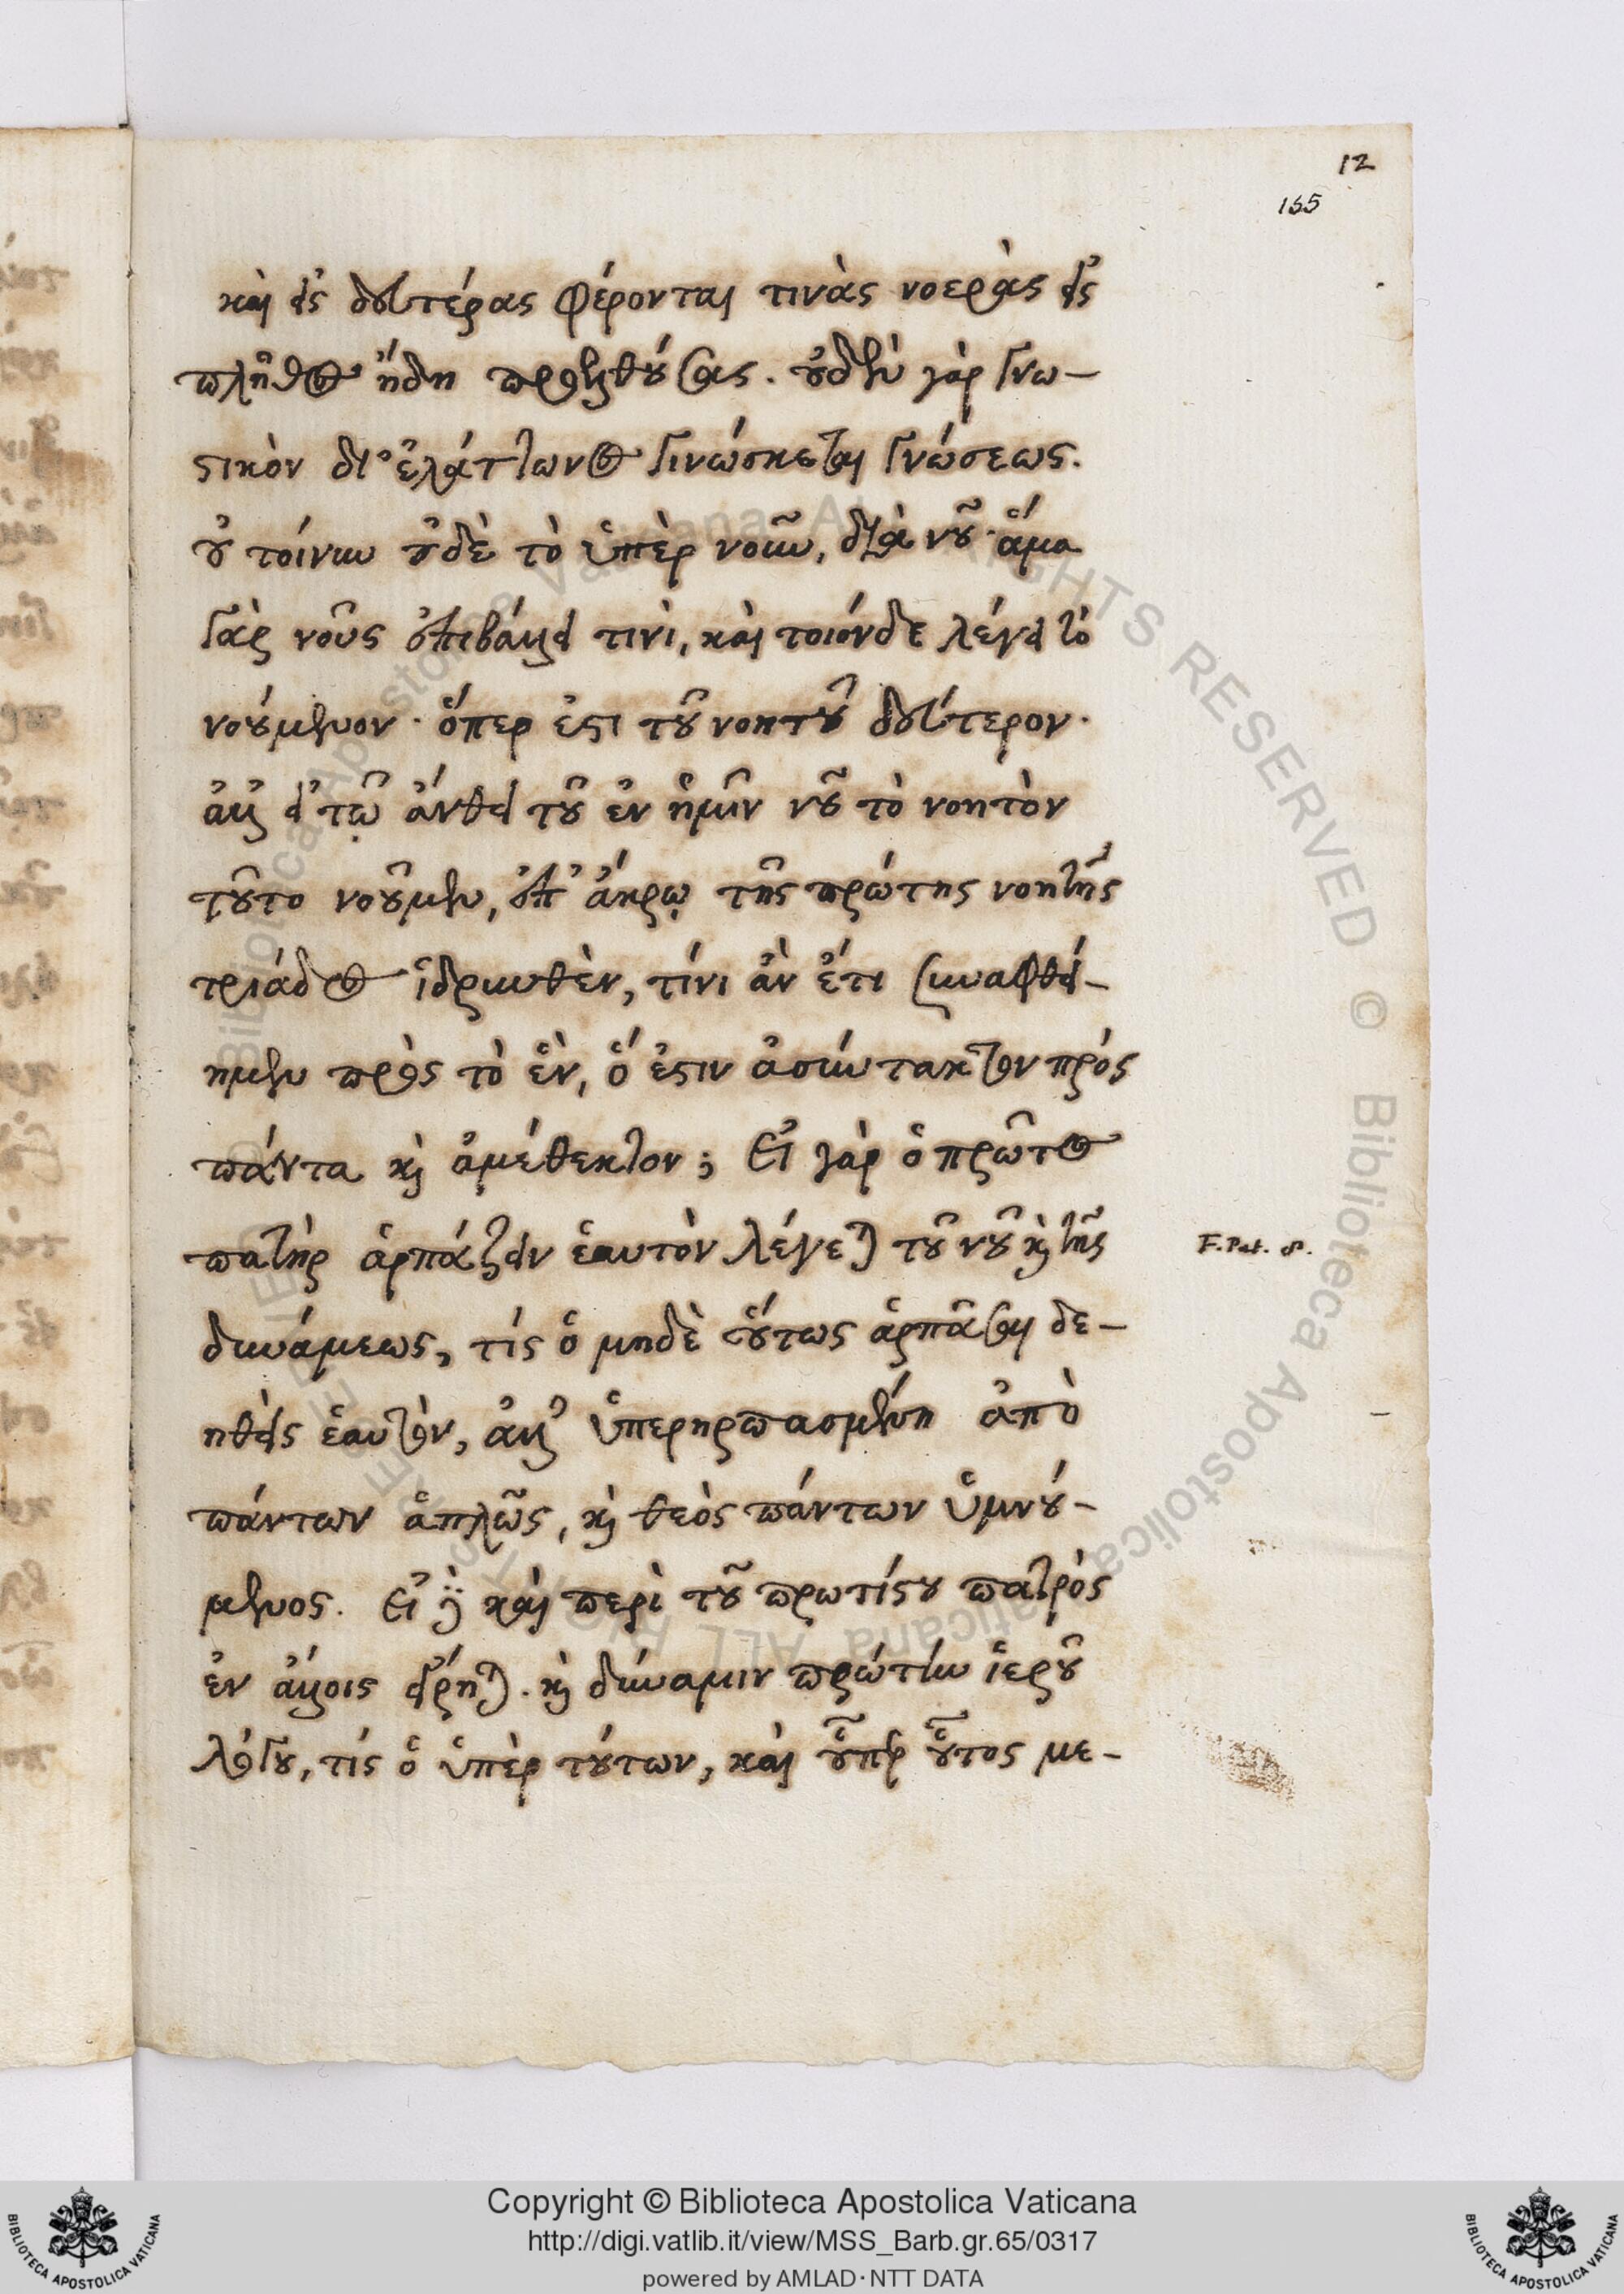 12
155
καὶ εἰς δευτέρας φέρονται τινὰς νοερὰς εἰς
πλῆθος ἤδη προελθούσας. οὐδὲν γὰρ γνω-
στικὸν δι' ἐλάττωνος γινώσκεται γνώσεως.
οὐ τοίνυν οὐδὲ τὸ ὑπὲρ νοῦν, διὰ νοῦ· ἅμα
γὰρ νοῦς ἐπιβάλλει τινὶ, καὶ τοιόνδε λέγει τὸ
νούμενον· ὅπερ ἐστι τοῦ νοητοῦ δεύτερον·
ἀλλ' εἰ τῷ ἄνθει τοῦ ἐν ἡμῖν νοῦ τὸ νοητὸν
τοῦτο νοοῦμεν, ἐπ' ἄκρῳ τῆς πρώτης νοητῆς
τριάδος ἱδρυνθὲν, τίνι ἂν ἔτι συναφθεί-
ημεν πρὸς τὸ ἓν, ὅ ἐστιν ἀσύντακτον πρὸς
πάντα καὶ ἀμέθεκτον; Εἰ γὰρ ὁ πρῶτος
πατὴρ ἁρπάζειν ἑαυτὸν λέγεται τοῦ νοῦ καὶ τῆς
F. Pat.
δυνάμεως, τίς ὁ μηδὲ οὕτως ἁρπᾶσαι δε-
ηθεὶς ἑαυτὸν, ἀλλ' ὑπερηρπασμένη ἀπὸ
πάντων ἁπλῶς, καὶ θεὸς πάντων ὑμνού-
μενος. Εἰ δὲ καὶ περὶ τοῦ πρωτίστου πατρὸς
ἐν ἄλλοις εἴρηται. καὶ δύναμιν πρώτην ἱεροῦ
λόγου, τίς ὁ ὑπὲρ τούτων, καὶ οὗπερ οὗτος με-
Copyright © Biblioteca Apostolica Vaticana
http://digi.vatlib.it/view/MSS_Barb.gr.65/0317
powered by AMLAD·NTT DATA
BIBLIOTECA APOSTOLICA VATICANA
BIBLIOTECA APOSTOLICA VATICANA